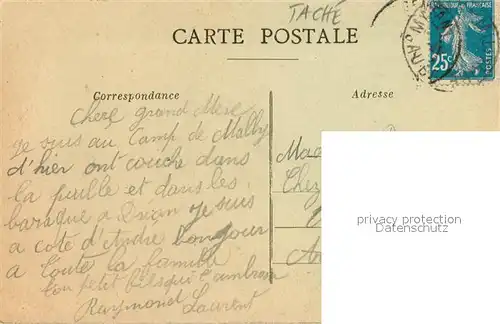 TACHÉ
CARTE POSTALE
RÉPUBLIQUE FRANÇAISE
25c
POSTES
Correspondance
Adresse
chere grand Mere
je suis au Camp de Mailly
d'hier ont couche dans
la paille et dans les
baraque a je suis
a cote d'Andre bonjour
a toute la famille
ton petit
Raymond Laurent
Mad
Chez
privacy protection
watermark